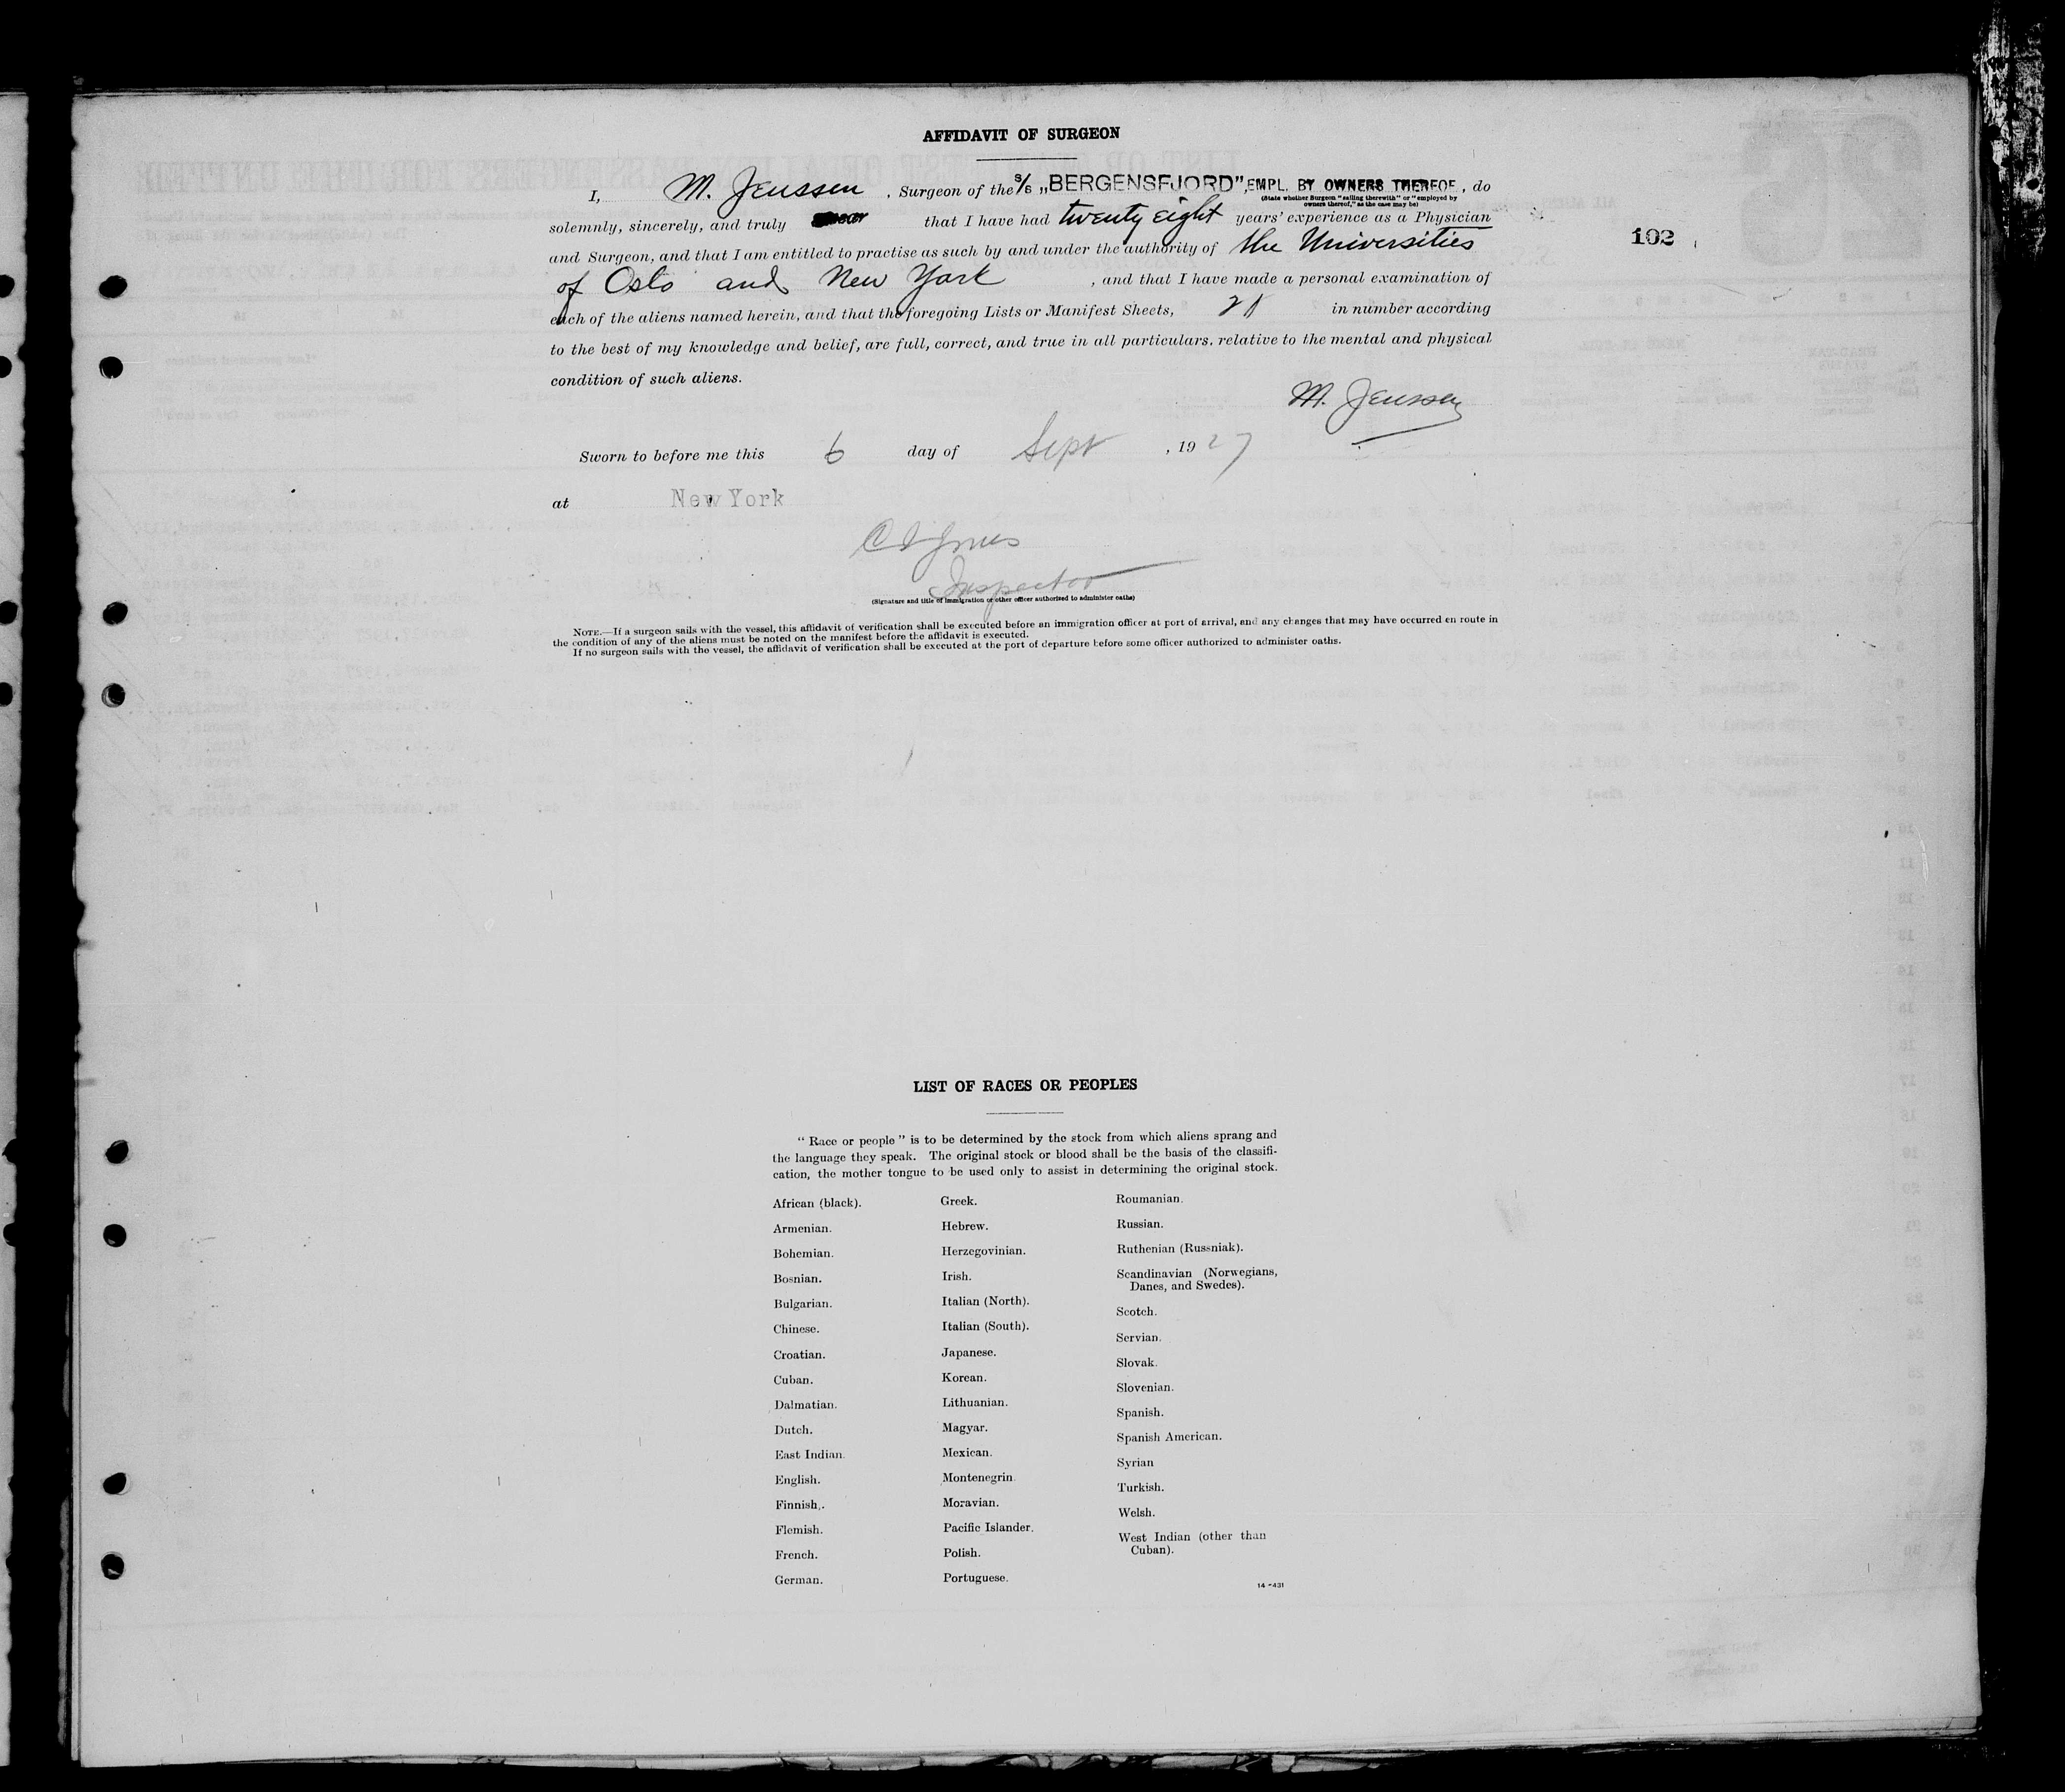 AFFIDAVIT OF SURGEON
I, M. Jenssen, Surgeon of the S/S „BERGENSFJORD”, EMPL. BY OWNERS THEREOF, do
(State whether Surgeon "sailing therewith" or "employed by
owners thereof," as the case may be)
solemnly, sincerely, and truly swear that I have had twenty eight years' experience as a Physician
102
and Surgeon, and that I am entitled to practise as such by and under the authority of the Universities
of Oslo and New York, and that I have made a personal examination of
each of the aliens named herein, and that the foregoing Lists or Manifest Sheets, 21 in number according
to the best of my knowledge and belief, are full, correct, and true in all particulars. relative to the mental and physical
condition of such aliens.
M. Jenssen
Sworn to before me this 6 day of Sept, 1927
at New York
Inspector
(Signature and title of immigration or other officer authorized to administer oaths)
NOTE.—If a surgeon sails with the vessel, this affidavit of verification shall be executed before an immigration officer at port of arrival, and any changes that may have occurred en route in
the condition of any of the aliens must be noted on the manifest before the affidavit is executed.
If no surgeon sails with the vessel, the affidavit of verification shall be executed at the port of departure before some officer authorized to administer oaths.
LIST OF RACES OR PEOPLES
"Race or people" is to be determined by the stock from which aliens sprang and
the language they speak. The original stock or blood shall be the basis of the classifi-
cation, the mother tongue to be used only to assist in determining the original stock.
African (black).
Armenian.
Bohemian.
Bosnian.
Bulgarian.
Chinese.
Croatian.
Cuban.
Dalmatian.
Dutch.
East Indian.
English.
Finnish.
Flemish.
French.
German.
Greek.
Hebrew.
Herzegovinian.
Irish.
Italian (North).
Italian (South).
Japanese.
Korean.
Lithuanian.
Magyar.
Mexican.
Montenegrin.
Moravian.
Pacific Islander.
Polish.
Portuguese.
Roumanian.
Russian.
Ruthenian (Russniak).
Scandinavian (Norwegians,
Danes, and Swedes).
Scotch.
Servian.
Slovak.
Slovenian.
Spanish.
Spanish American.
Syrian
Turkish.
Welsh.
West Indian (other than
Cuban).
14-431